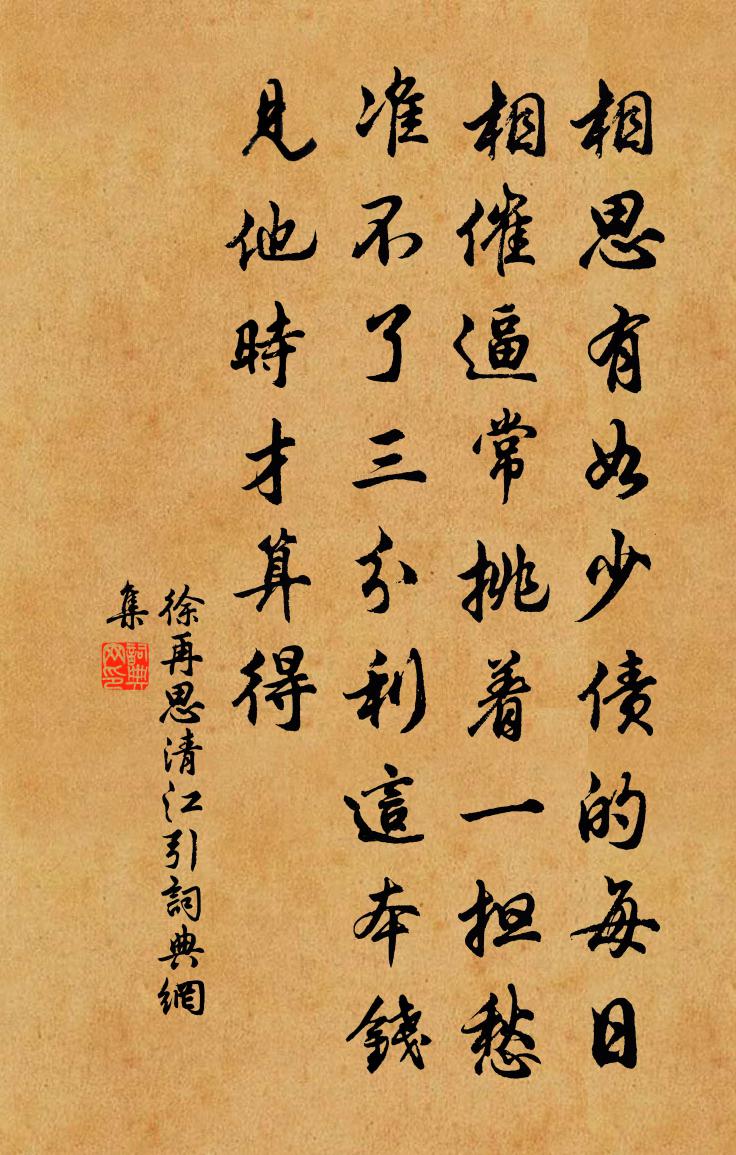 相思有如少债的每日
相催逼常挑着一担愁
准不了三分利這本錢
見他時才算得
徐再思清江引詞典網
集
詞典
网印